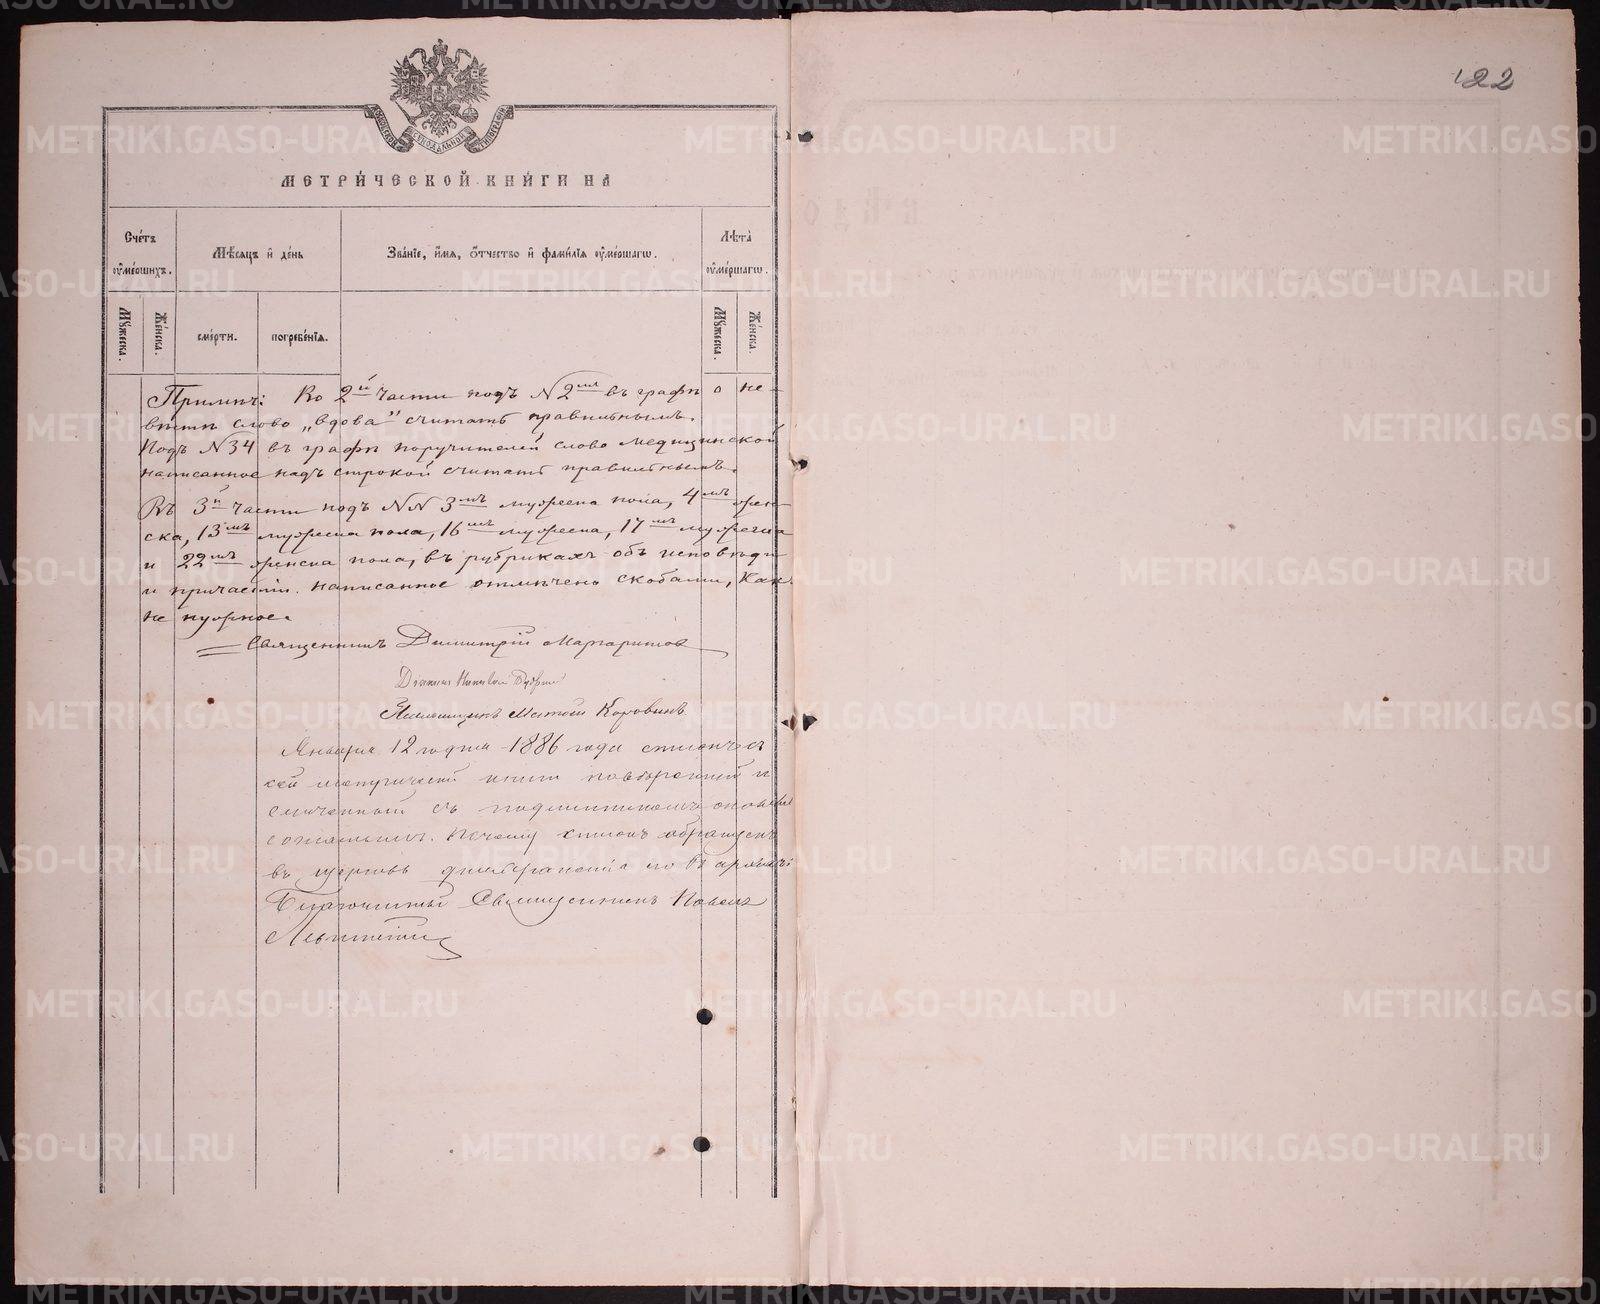 122
МОСКОВСКОЙ СѴНОДАЛЬНОЙ ТИПОГРАФІИ
МЕТРИ́ЧЕСКОЙ КНИ́ГИ НА
Сче́тъ ᲂу҆ме́ршихъ.
Мѣ́сяцъ и҆ де́нь
Зва́нїе, и҆́мя, ѻ҆́тчество и҆ фами́лїѧ ᲂу҆ме́ршагѡ.
Лѣ́та ᲂу҆ме́ршагѡ.
Мꙋ́жеска.
Же́нска.
сме́рти.
погребе́нїѧ.
Мꙋ́жеска.
Же́нска.
Примѣч: Во 2й части подъ N 2мъ въ графѣ о не-
вѣстѣ слово „вдова" считать правильнымъ.
Подъ N 34 въ графѣ поручителей слово медицинской
написанное надъ строкой считать правильнымъ.
Въ 3й части подъ NN 3мъ мужеска пола, 4мъ жен-
ска, 13мъ мужеска пола, 16мъ мужеска, 17мъ мужеска
и 22мъ женска пола, въ рубрикахъ объ исповѣди
и причастіи написанное отмѣчено скобами, как
не нужное.
Священникъ Димитрій Маргаритовъ
Діаконъ Николай
Псаломщикъ Матѳій Коровинъ
Января 12го дня 1886 года списокъ
сей метрической книги повѣренный и
сличенный съ подлинникомъ оказался
согласнымъ. Почему списокъ обращенъ
въ церковь для храненія
Благочинный Священникъ Павелъ
Левитскій
METRIKI.GASO-URAL.RU